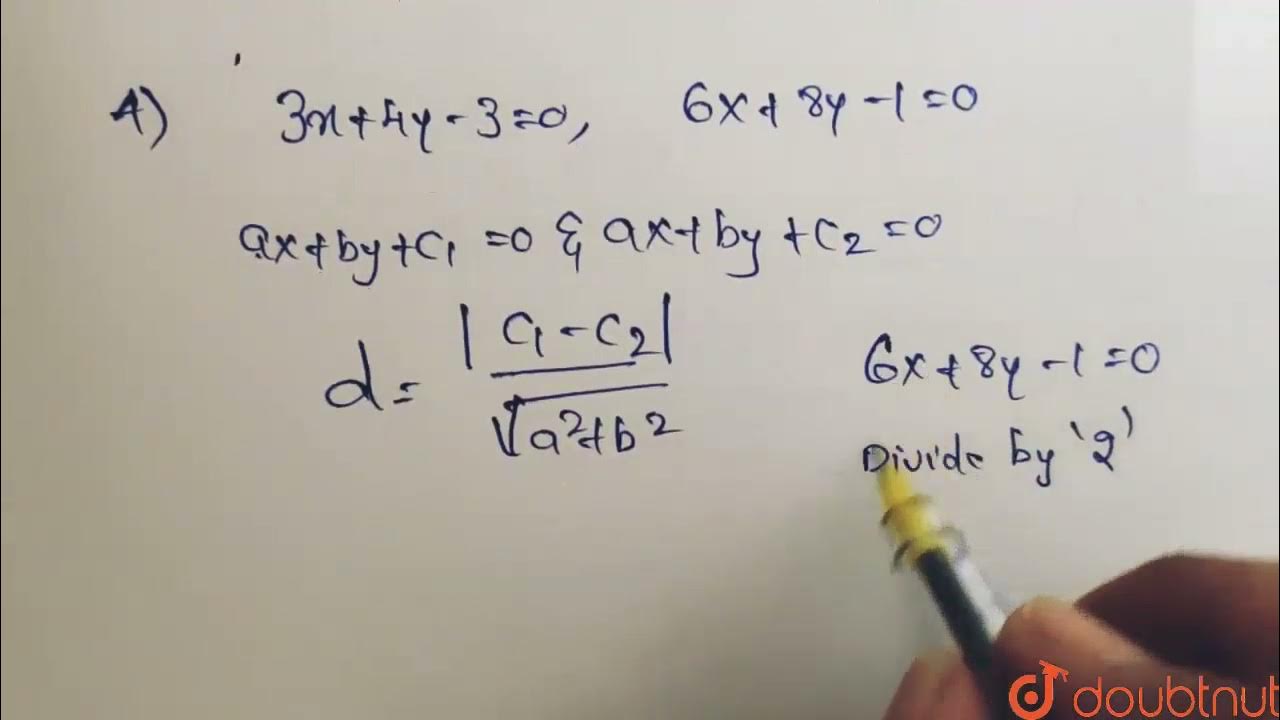 A) 3x+4y-3=0, 6x+8y-1=0
ax+by+c₁=0 & ax+by+c₂=0
d= |c₁-c₂| / √a²+b²
6x+8y-1=0
Divide by '2'
doubtnut